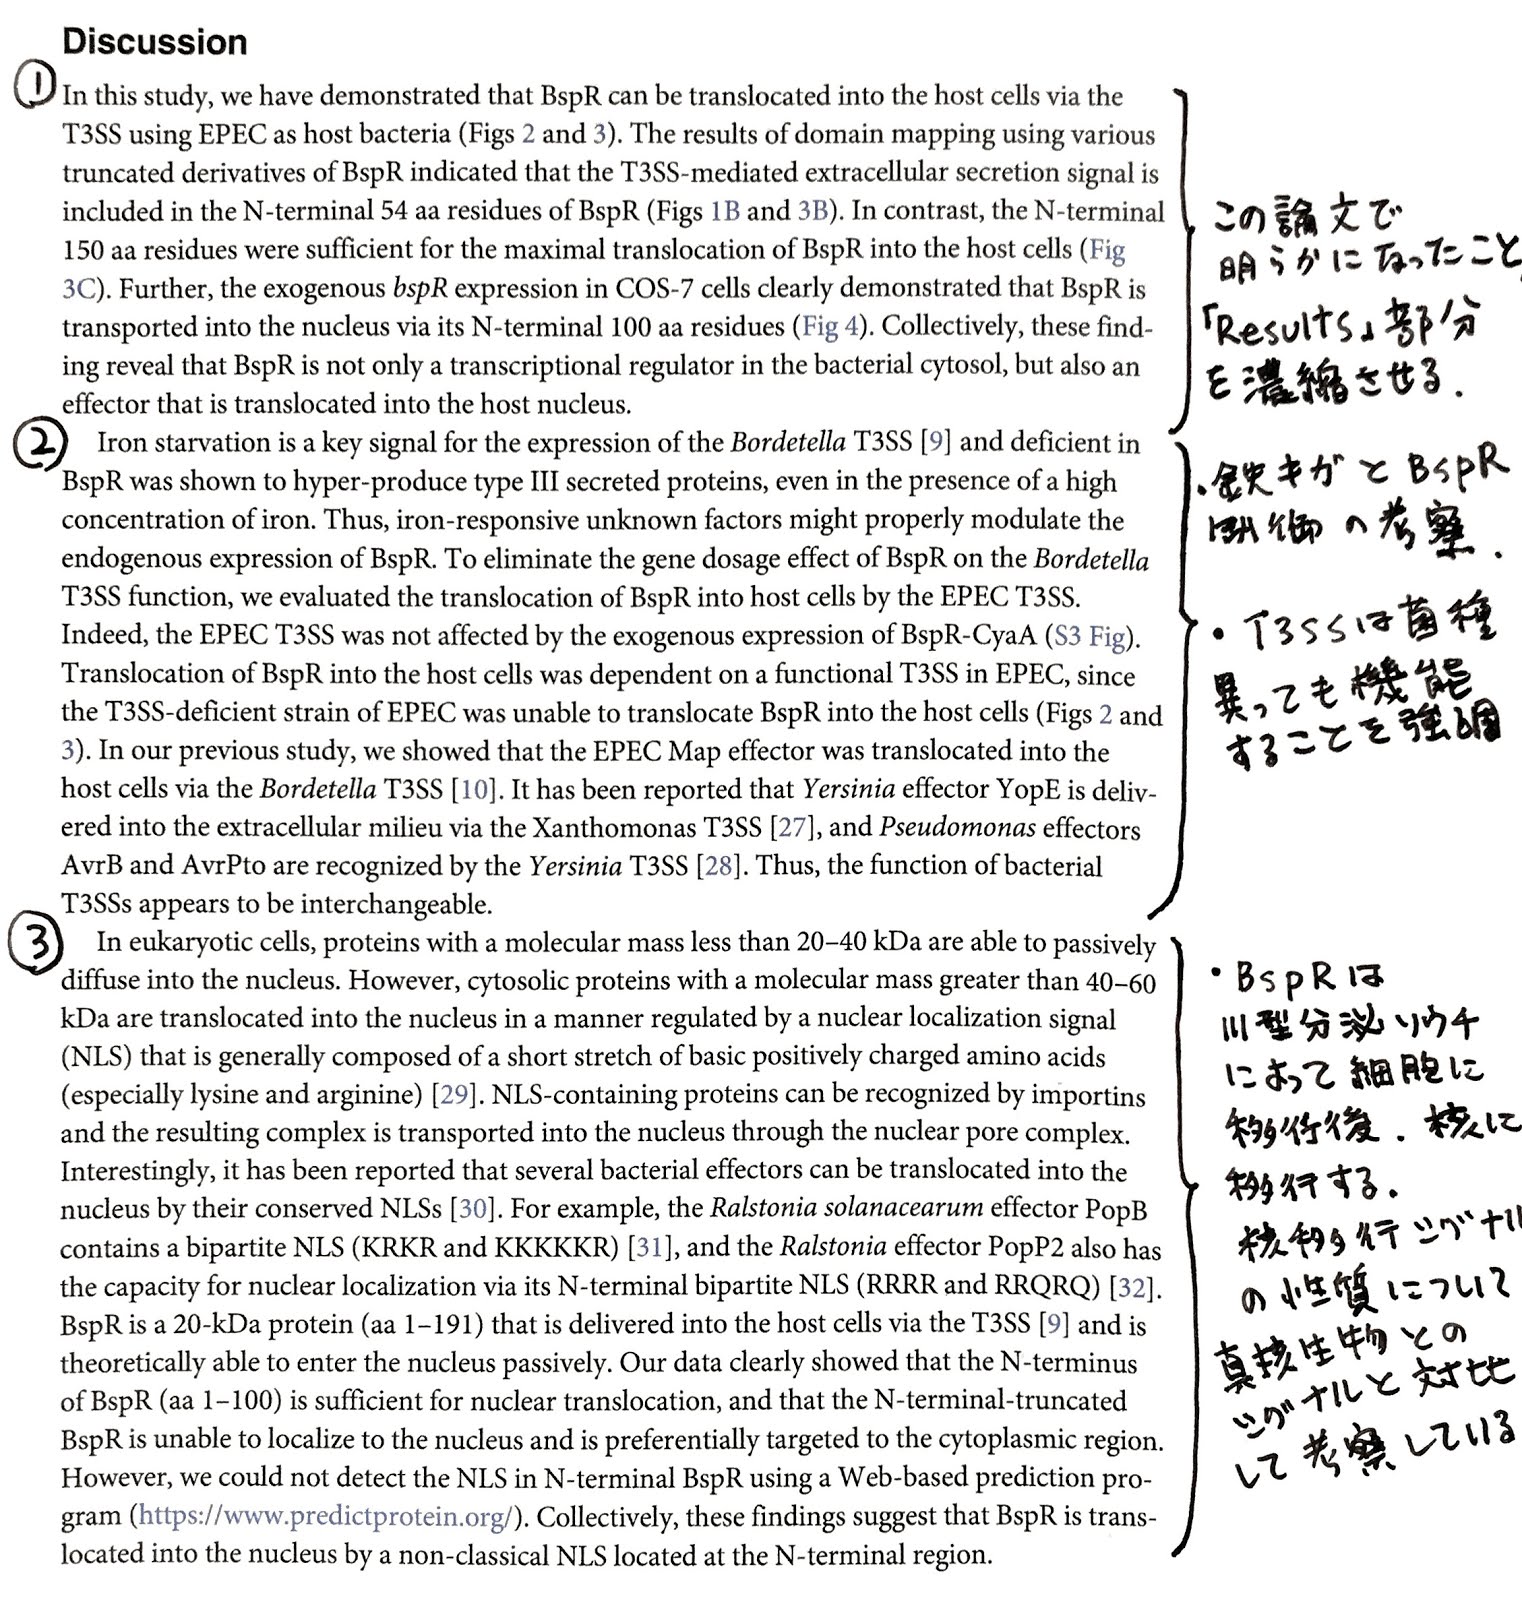 Discussion
①
In this study, we have demonstrated that BspR can be translocated into the host cells via the
T3SS using EPEC as host bacteria (Figs 2 and 3). The results of domain mapping using various
truncated derivatives of BspR indicated that the T3SS-mediated extracellular secretion signal is
included in the N-terminal 54 aa residues of BspR (Figs 1B and 3B). In contrast, the N-terminal
150 aa residues were sufficient for the maximal translocation of BspR into the host cells (Fig
3C). Further, the exogenous bspR expression in COS-7 cells clearly demonstrated that BspR is
transported into the nucleus via its N-terminal 100 aa residues (Fig 4). Collectively, these find-
ing reveal that BspR is not only a transcriptional regulator in the bacterial cytosol, but also an
effector that is translocated into the host nucleus.
この論文で
明らかになったこと,
「Results」部分
を濃縮させる.
②
Iron starvation is a key signal for the expression of the Bordetella T3SS [9] and deficient in
BspR was shown to hyper-produce type III secreted proteins, even in the presence of a high
concentration of iron. Thus, iron-responsive unknown factors might properly modulate the
endogenous expression of BspR. To eliminate the gene dosage effect of BspR on the Bordetella
T3SS function, we evaluated the translocation of BspR into host cells by the EPEC T3SS.
Indeed, the EPEC T3SS was not affected by the exogenous expression of BspR-CyaA (S3 Fig).
Translocation of BspR into the host cells was dependent on a functional T3SS in EPEC, since
the T3SS-deficient strain of EPEC was unable to translocate BspR into the host cells (Figs 2 and
3). In our previous study, we showed that the EPEC Map effector was translocated into the
host cells via the Bordetella T3SS [10]. It has been reported that Yersinia effector YopE is deliv-
ered into the extracellular milieu via the Xanthomonas T3SS [27], and Pseudomonas effectors
AvrB and AvrPto are recognized by the Yersinia T3SS [28]. Thus, the function of bacterial
T3SSs appears to be interchangeable.
・鉄キガとBspR
の考察.
・T3SSは菌種
異っても機能
することを強調
③
In eukaryotic cells, proteins with a molecular mass less than 20–40 kDa are able to passively
diffuse into the nucleus. However, cytosolic proteins with a molecular mass greater than 40–60
kDa are translocated into the nucleus in a manner regulated by a nuclear localization signal
(NLS) that is generally composed of a short stretch of basic positively charged amino acids
(especially lysine and arginine) [29]. NLS-containing proteins can be recognized by importins
and the resulting complex is transported into the nucleus through the nuclear pore complex.
Interestingly, it has been reported that several bacterial effectors can be translocated into the
nucleus by their conserved NLSs [30]. For example, the Ralstonia solanacearum effector PopB
contains a bipartite NLS (KRKR and KKKKKR) [31], and the Ralstonia effector PopP2 also has
the capacity for nuclear localization via its N-terminal bipartite NLS (RRRR and RRQRQ) [32].
BspR is a 20-kDa protein (aa 1–191) that is delivered into the host cells via the T3SS [9] and is
theoretically able to enter the nucleus passively. Our data clearly showed that the N-terminus
of BspR (aa 1–100) is sufficient for nuclear translocation, and that the N-terminal-truncated
BspR is unable to localize to the nucleus and is preferentially targeted to the cytoplasmic region.
However, we could not detect the NLS in N-terminal BspR using a Web-based prediction pro-
gram (https://www.predictprotein.org/). Collectively, these findings suggest that BspR is trans-
located into the nucleus by a non-classical NLS located at the N-terminal region.
・BspRは
III型分泌ソウチ
によって細胞に
移行後. 核に
移行する.
核移行シグナル
の性質について
真核生物との
シグナルと対比
して考察している